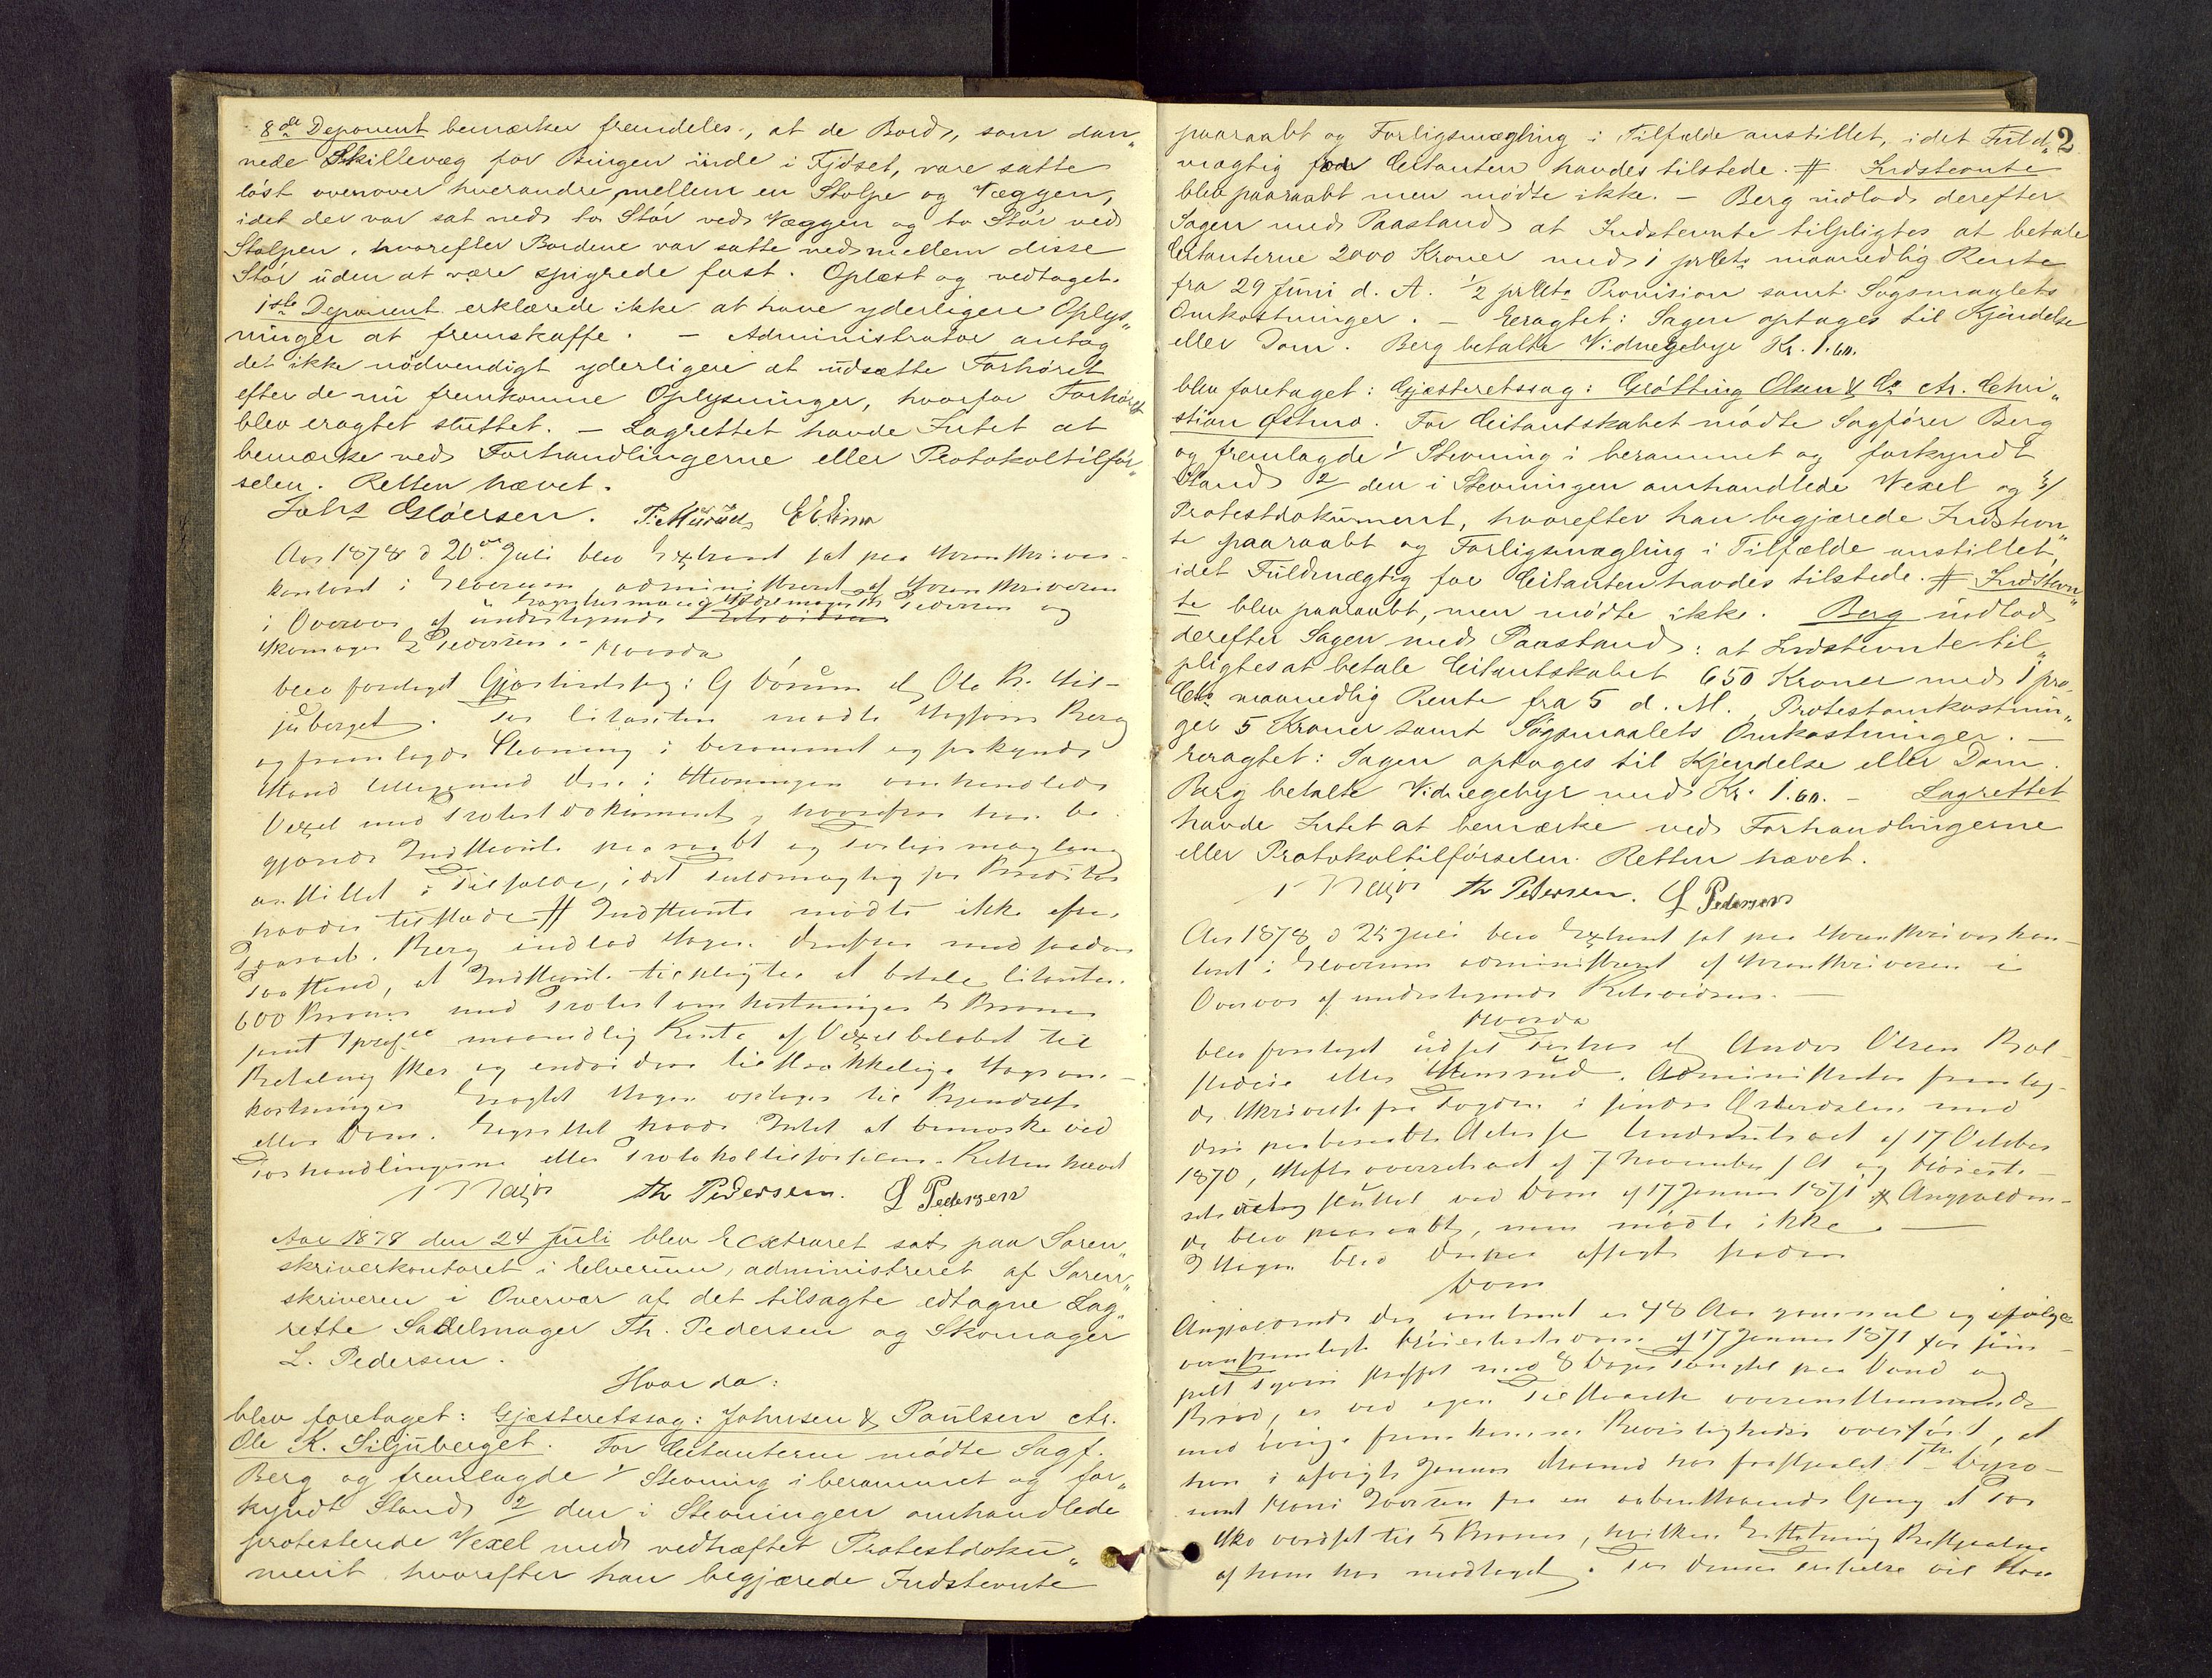 8de Deponent bemærker fremdeles, at de Bord, som dan„
nede Skillevæg for Bingen inde i Fjøset, vare satte
løst ovenover hverandre mellem en Stolpe og Væggen,
idet der var sat ned to Stør ved Væggen og to Stør ved
Stolpen, hvorefter Bordene var satte ned mellem disse
Stør uden at være spigrede fast. Oplæst og vedtaget.
1ste Deponent erklærede ikke at have yderligere Oplys„
ninger at fremskaffe. – Administrator antog
det ikke nødvendigt yderligere at udsætte Forhøret
efter de nu fremkomne Oplysninger, hvorfor Forhøret
blev eragtet sluttet. – Lagrettet havde Intet at
bemærke ved Forhandlingerne eller Protokoltilfør„
selen. Retten hævet.
Aar 1878 d 20de Juli blev Extraret sat paa Sorenskriver-
kontoret i Elverum administreret af Sorenskriveren
i Overvær af undertegnede Pedersen og
Skomager L Pedersen. – Hvorda
blev foretaget Gjæsteretssag: G Børum ctr Ole K. Sil-
juberget. For Citanten mødte Sagfører Berg
og fremlagde Stevning i berammet og forkyndt
Stand tilligemed den i Stevningen omhandlede
Vexel med Protestdokument, hvorefter han be-
gjærede Indstevnte paaraabt og Forligsmægling
anstillet i Tilfælde, idet Fuldmægtig for
havdes tilstede # Indstevnte mødte ikke efter
Paaraab. Berg indlod Sagen derefter med saadan
Paastand, at Indstevnte tilpligtes at betale Citanten
600 Kroner med Protestomkostninger 5 Kroner
samt 1 pro Ct maanedlig Rente af Vexelbeløbet til
Betaling sker og endvidere tilstrækkelige Sagsom-
kostninger Eragtet Sagen optages til Kjendelse
eller Dom. Lagrettet havde Intet at bemærke ved
Forhandlingerne eller Protokoltilførselen. Retten hævet
Th Pedersen. L Pedersen
Aar 1878 den 24 Juli blev Extraret sat paa Soren„
skriverkontoret i Elverum, administreret af Soren„
skriveren i Overvær af det tilsagte edtagne Lag„
rette Sadelmager Th. Pedersen og Skomager
L. Pedersen.
Hvorda:
blev foretaget: Gjæsteretssag: Johnsen & Paulsen ctr.
Ole K. Siljuberget. For Citanterne mødte Sagf.
Berg og fremlagde 1/ Stevning i berammet og for„
kyndt Stand 2/ den i Stevningen omhandlede
protesterede Vexel med vedhæftet Protestdoku„
ment, hvorefter han begjærede Indstevnte
2
paaraabt og Forligsmægling i Tilfælde anstillet, idet Fuld„
mægtig for Citanten havdes tilstede. # Indstevnte
blev paaraabt men mødte ikke. – Berg indlod derefter
Sagen med Paastand at Indstevnte tilpligtes at betale
Citanterne 2000 Kroner med 1 pr Ct. maanedlig Rente
fra 29 Juni d. A. 1/2 pr Ct. Provision samt Søgsmaalets
Omkostninger. – Eragtet: Sagen optages til Kjendelse
eller Dom. Berg betalte Vidnegebyr Kr. 1.60.
blev foretaget: Gjæsteretssag: Grøtting Olsen & Co ctr. Chri„
stian Østmo. For Citantskabet mødte Sagfører Berg
og fremlagde 1/ Stevning i berammet og forkyndt
Stand 2/ den i Stevningen omhandlede Vexel og 3/
Protestdokument, hvorefter han begjærede Indstevn„
te paaraabt og Forligsmægling i Tilfælde anstillet,
idet Fuldmægtig for Citanten havdes tilstede. # Indstevn„
te blev paaraabt, men mødte ikke. Berg indlod
derefter Sagen med Paastand: at Indstevnte til„
pligtes at betale Citantskabet 650 Kroner med 1 pro
Ct. maanedlig Rente fra 5 d. M., Protestomkostnin„
ger 5 Kroner samt Søgsmaalets Omkostninger. –
Eragtet: Sagen optages til Kjendelse eller Dom.
Berg betalte Vidnegebyr med Kr. 1.60. – Lagrettet
havde Intet at bemærke ved Forhandlingerne
eller Protokoltilførselen. Retten hævet.
Th Pedersen. L Pedersen
Aar 1878 d 25 Juli blev Extraret sat paa Sorenskriverkon-
toret i Elverum administreret af Sorenskriveren i
Overvær af undertegnede Retsvidner. –
Hvorda
blev foretaget udsat Forhør ctr Anders Olsen
eller Stensrud. Administrator fremlag-
de Skrivelse fra Fogden i søndre Østerdalen med
den paaberaabte Act Underretsact af 17 October
1870, Stiftsoverretsact af 7 November s A og Høieste-
retsact sluttet ved Dom af 17 Januar 1871 # Angjælden-
de blev paaraabt, men mødte ikke. –
I Sagen blev derpaa afsagt saadan
Dom
Angjældende der omtrent er 48 Aar gammel og ifølge
ovenfremlagte Høiesteretsdom af 17 Januar 1871 for sim-
pelt Tyveri straffet med 8 Dages Fængsel paa Vand og
Brød, er ved egen Tilstaaelse overensstemmende
med øvrige fremkomne Bevisligheder overført, at
han i afvigte Januar Maaned har frastjaalet 1ste Depo-
nent fra en aabenstaaende Gang et Par
Sko værdsat til 5 Kroner, hvilken Erstatning Bestjaalne
af ham har modtaget. For denne Forseelse vil han